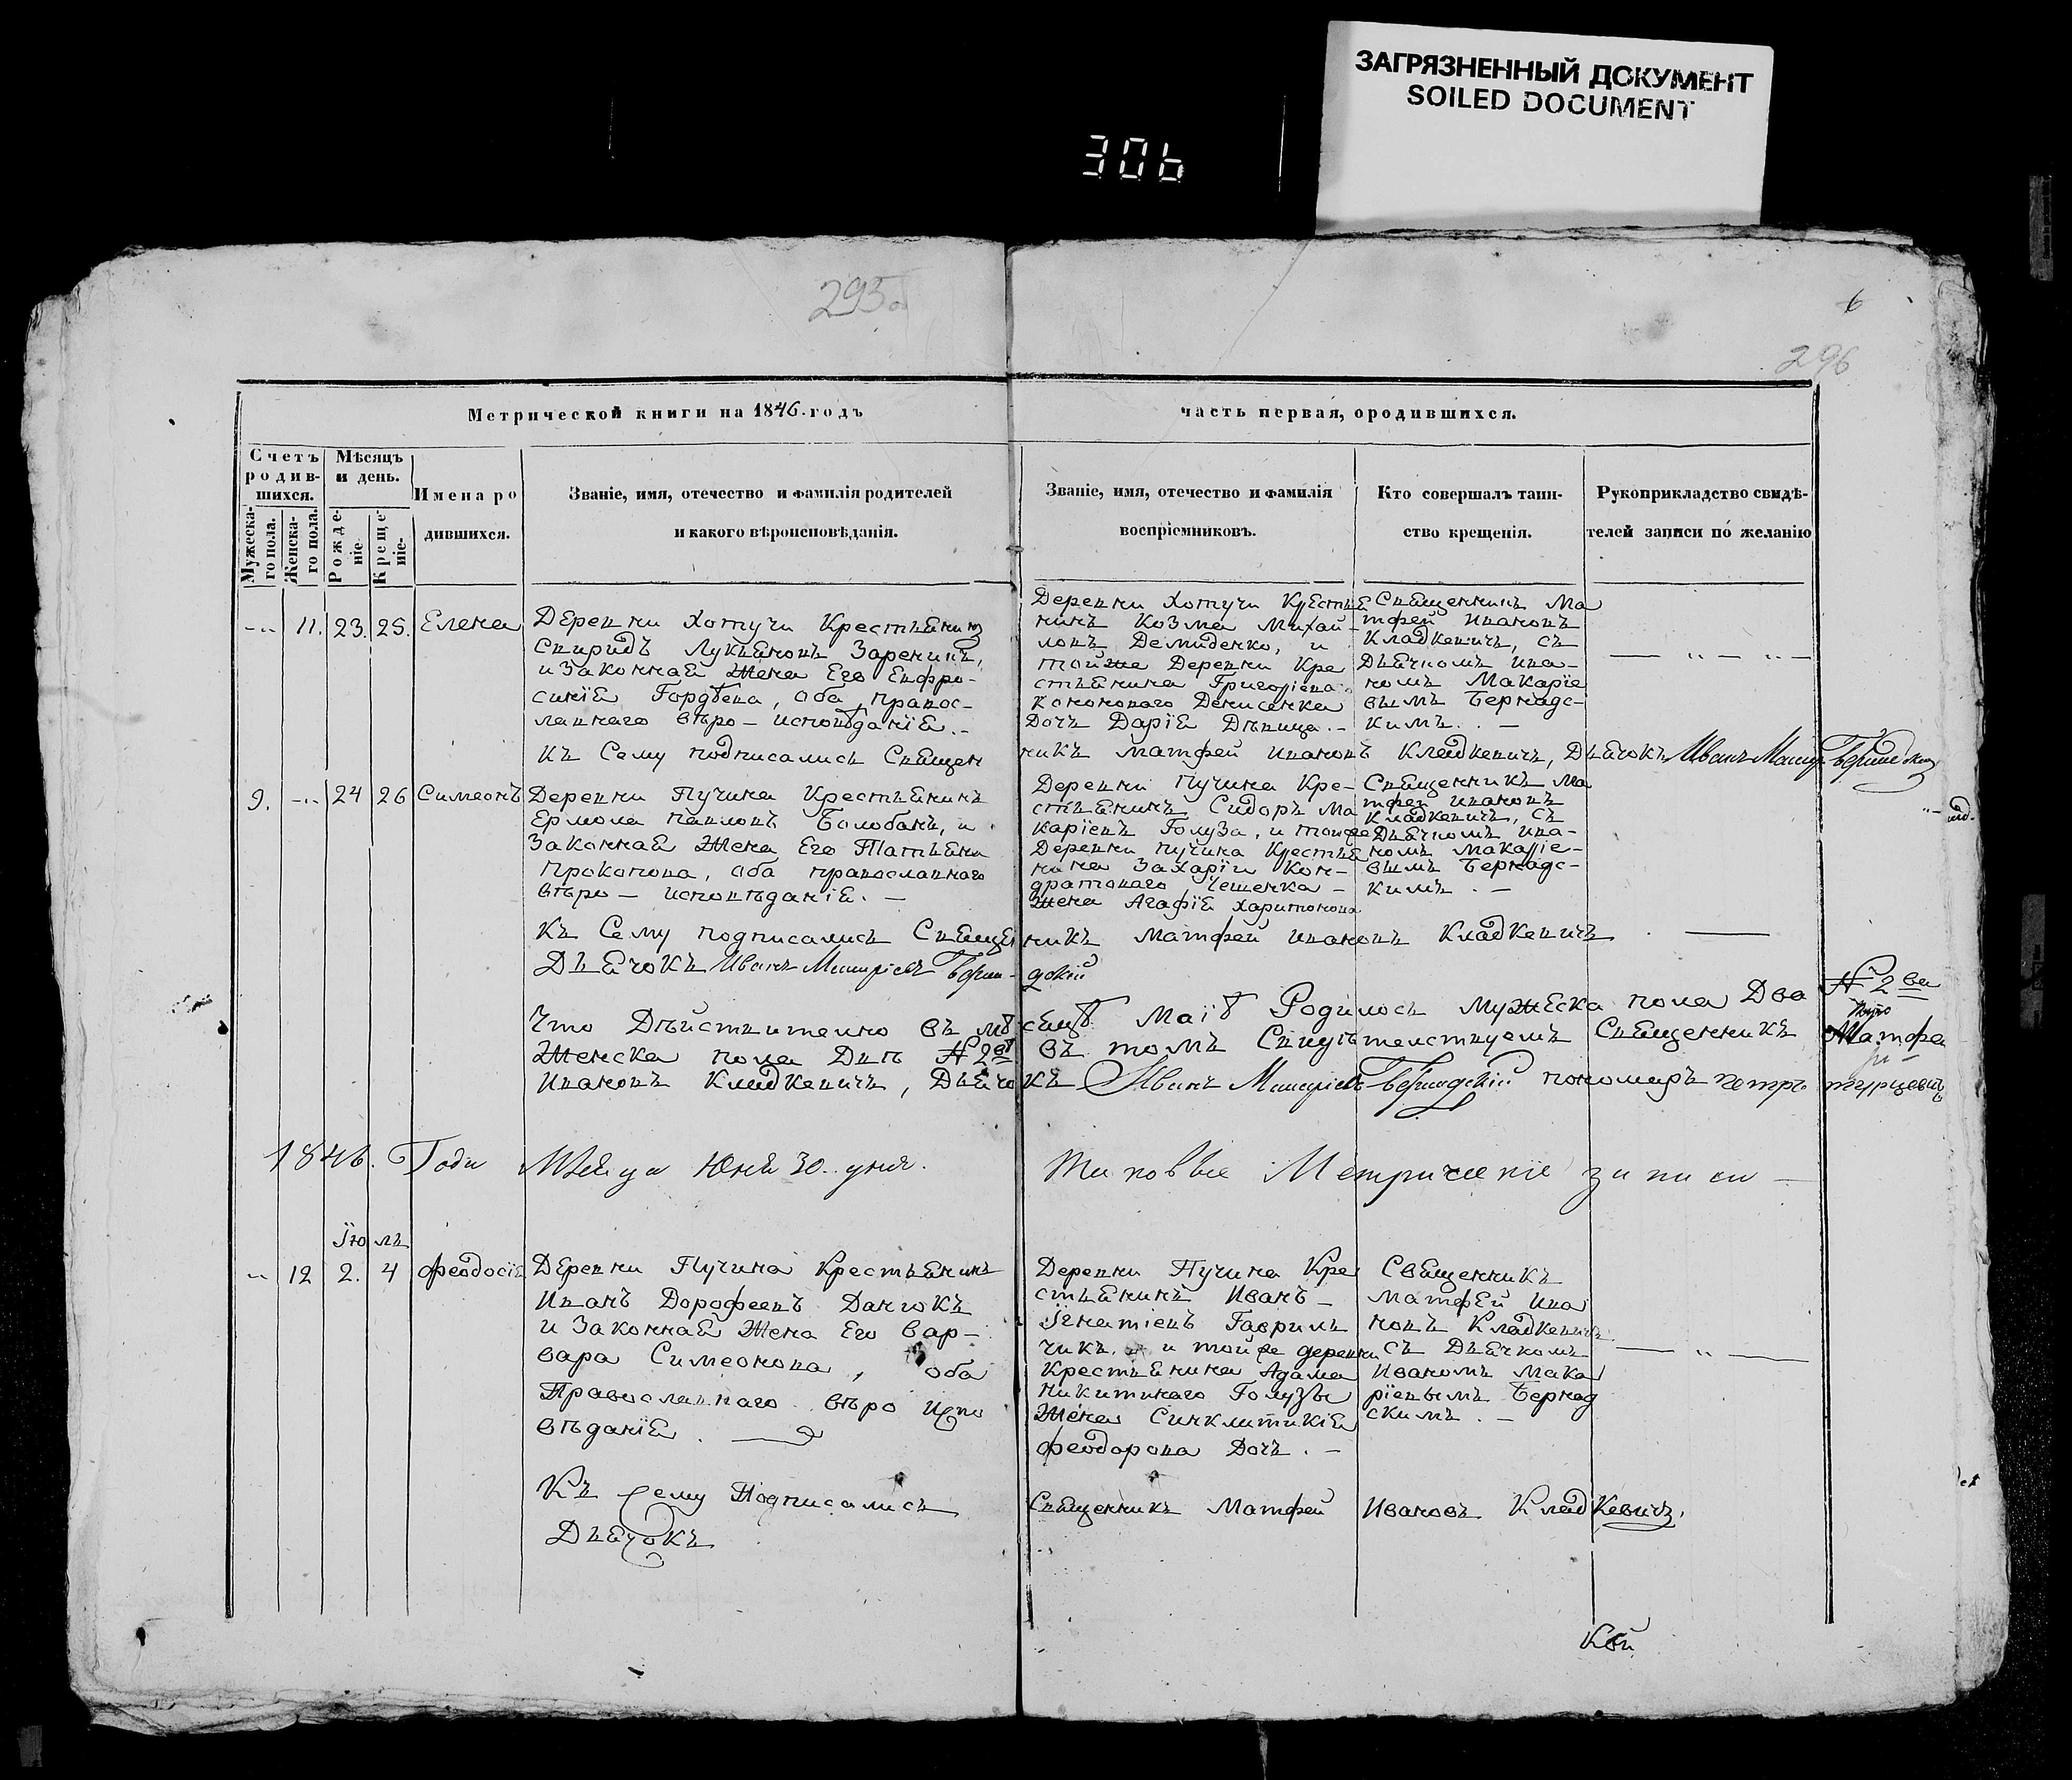 ЗАГРЯЗНЕННЫЙ ДОКУМЕНТ
SOILED DOCUMENT
306
295об
6
296
Метрической книги на 1846.годъ
часть первая, ородившихся.
Счетъ родив-шихся.
Мужеска-го пола.
Женска-го пола.
Мѣсяцъ и день.
Рожде-ніе
Креще-ніе.
Имена ро
дившихся.
Званіе, имя, отечество и фамилія родителей
и какого вѣроисповѣданія.
Званіе, имя, отечество и фамилія
воспріемниковъ.
Кто совершалъ таин-
ство крещенія.
Рукоприкладство свидѣ-
телей записи по желанію
11. 23. 25. Елена
Деревни Хотучи Крестьянинъ
Спиридъ Лукьяновъ Заренинъ,
и Законная Жена Его Евфро-
синія Гордѣева, оба, право-
славнаго вѣро-исповѣданія.-
Деревни Хотучи Крестья
нинъ Козма Михай-
ловъ Демиденко, и
тойже Деревни Кре
стьянина Григоріева
Кононоваго Денисенка
Дочь Дарія Дѣвица.-
Священникъ Ма
тфей Ивановъ
Кладкевичъ, съ
Дьячкомъ Ива-
номъ Макаріе
вымъ Бернадс-
кимъ. -
Къ Сему подписались Священ
никъ Матфей Ивановъ Кладкевичъ, Дьячокъ Иванъ
9. 24 26 Симеонъ
Деревни Пучина Крестьянинъ
Ермола Павловъ Болобанъ, и
Законная Жена Его Татьяна
Прокопова, оба православнаго
вѣро - исповѣданія. -
Деревни Пучина Кре-
стьянинъ Сидоръ Ма
каріевъ Голуза, и тойже
Деревни Пучина Крестья
нина Захарія Кон-
дратоваго Чешенка -
Жена Агафія Харитонова
Священникъ Ма
тфей Ивановъ
Кладкевичъ, съ
Дьячкомъ Ива-
номъ Макаріе-
вымъ Бернадс-
кимъ. -
Къ Сему подписались Священ
никъ Матфей Ивановъ Кладкевичъ
Дьячокъ Иванъ
Что Дѣйствительно въ мѣ
сяцѣ Маіѣ Родилось мужеска пола Два № 2 ва
Женска пола Двѣ № 2 ѣ
въ томъ Свидѣтельствуемъ Священникъ Матфе
Ивановъ Кладкевичъ, Дьячо
къ Иванъ пономаръ Петръ
1846. Года
Юня 30. дня.
Таковые Метрическіе записи -
Іюль
12 2. 4 Феодосія
Деревни Пучина Крестьянинъ
Иванъ Дорофеевъ Данюкъ
и Законная Жена Его Вар-
вара Симеонова, оба
Православнаго вѣро испо
вѣданія.
Деревни Пучина Кре
стьянинъ Иванъ -
Ігнатіевъ Гаврил
чикъ. и тойже деревни
Крестьянина Адама
Никитинаго Голузы
Жена Синклитикія
Феодорова Дочь. -
Священникъ
Матфей Ива
новъ Кладкевичъ
съ Дьячкомъ
Иваномъ Мака
ріевымъ Бернад
скимъ. -
Къ Сему Подписались
Священникъ Матфей Ивановъ Кладкевичъ.
Дьячокъ